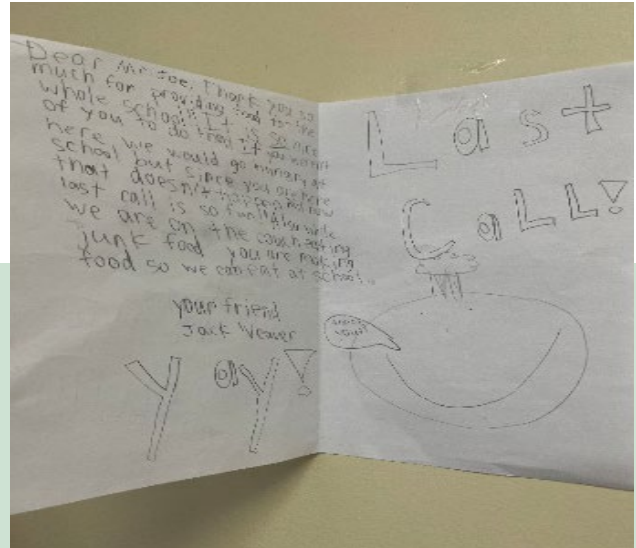 Dear Mr. Joe, thank you so
much for providing food for the
whole school!!! It is so nice
of you to do that, if you weren't
here, we would go hungry at
school but since you are here
that doesn't happen and now
last call is so fun!! Also while
we are on the couch eating
junk food you are making
food so we can eat at school.
your friend
Jack Weaver
Yay!
Last
Call!